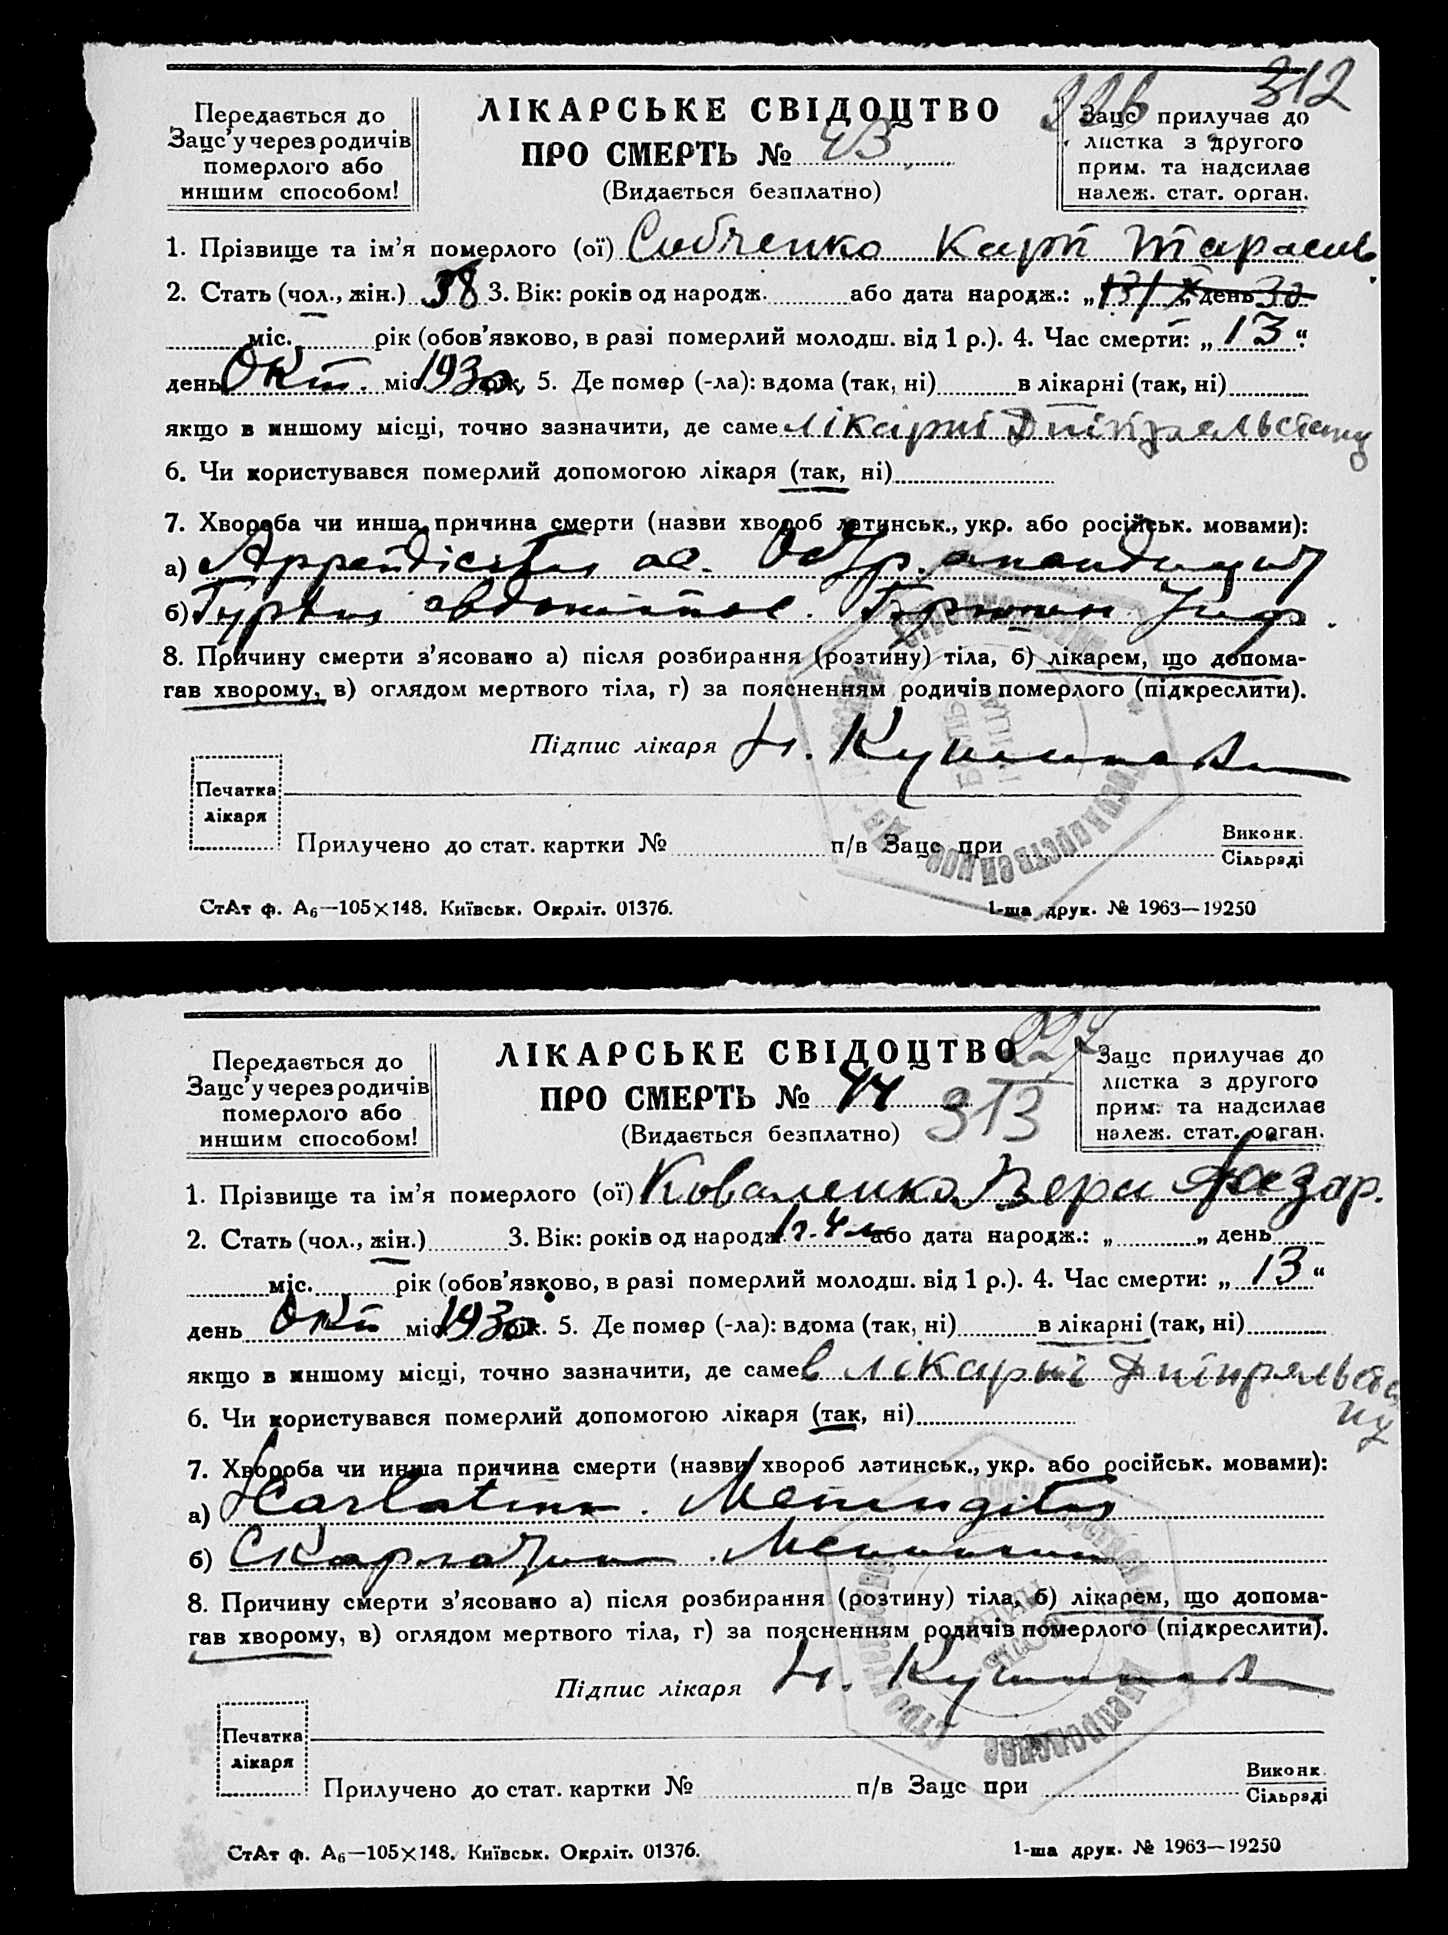 312
226
Передається до
Зацс'у через родичів
померлого або
иншим способом!
ЛІКАРСЬКЕ СВІДОЦТВО
ПРО СМЕРТЬ № 43
(Видається безплатно)
Зацс прилучає до
листка з другого
прим. та надсилає
належ. стат. орган.
1. Прізвище та ім'я померлого (ої) Карп Тарасов.
2. Стать (чол., жін.) 38 3. Вік: років од народж. або дата народж.: „ 13/X „ день 30
міс. рік (обов'язково, в разі померлий молодш. від 1 р.). 4. Час смерти: „ 13 “
день Окт. міс. 1930 рік. 5. Де помер (-ла): вдома (так, ні) в лікарні (так, ні)
якщо в иншому місці, точно зазначити, де саме лікарні Дніпрельстану
6. Чи користувався померлий допомогою лікаря (так, ні)
7. Хвороба чи инша причина смерти (назви хвороб латинськ., укр. або російськ. мовами):
а) Appendicitus ac.
б)
8. Причину смерти з'ясовано а) після розбирання (розтину) тіла, б) лікарем, що допома-
гав хворому, в) оглядом мертвого тіла, г) за поясненням родичів померлого (підкреслити).
Підпис лікаря
Печатка
лікаря
Прилучено до стат. картки № п/в Зацс при Виконк.
Сільраді
СтАт ф. А6—105×148. Київськ. Окрліт. 01376. 1-ша друк. № 1963—19250
Передається до
Зацс'у через родичів
померлого або
иншим способом!
ЛІКАРСЬКЕ СВІДОЦТВО
ПРО СМЕРТЬ № 44
313
(Видається безплатно)
Зацс прилучає до
листка з другого
прим. та надсилає
належ. стат. орган.
1. Прізвище та ім'я померлого (ої) Коваленко Вера Лазар.
2. Стать (чол., жін.) 3. Вік: років од народж. 1 г. 4 м або дата народж.: „ „ день
міс. рік (обов'язково, в разі померлий молодш. від 1 р.). 4. Час смерти: „ 13 “
день Окт міс. 1930 рік. 5. Де помер (-ла): вдома (так, ні) в лікарні (так, ні)
якщо в иншому місці, точно зазначити, де саме в лікарні Дніпрельста
ну
6. Чи користувався померлий допомогою лікаря (так, ні)
7. Хвороба чи инша причина смерти (назви хвороб латинськ., укр. або російськ. мовами):
а) Scarlatina. Meningitus
б) Скарлатина. Менингит
8. Причину смерти з'ясовано а) після розбирання (розтину) тіла, б) лікарем, що допома-
гав хворому, в) оглядом мертвого тіла, г) за поясненням родичів померлого (підкреслити).
Підпис лікаря
Печатка
лікаря
Прилучено до стат. картки № п/в Зацс при Виконк.
Сільраді
СтАт ф. А6—105×148. Київськ. Окрліт. 01376. 1-ша друк. № 1963—19250